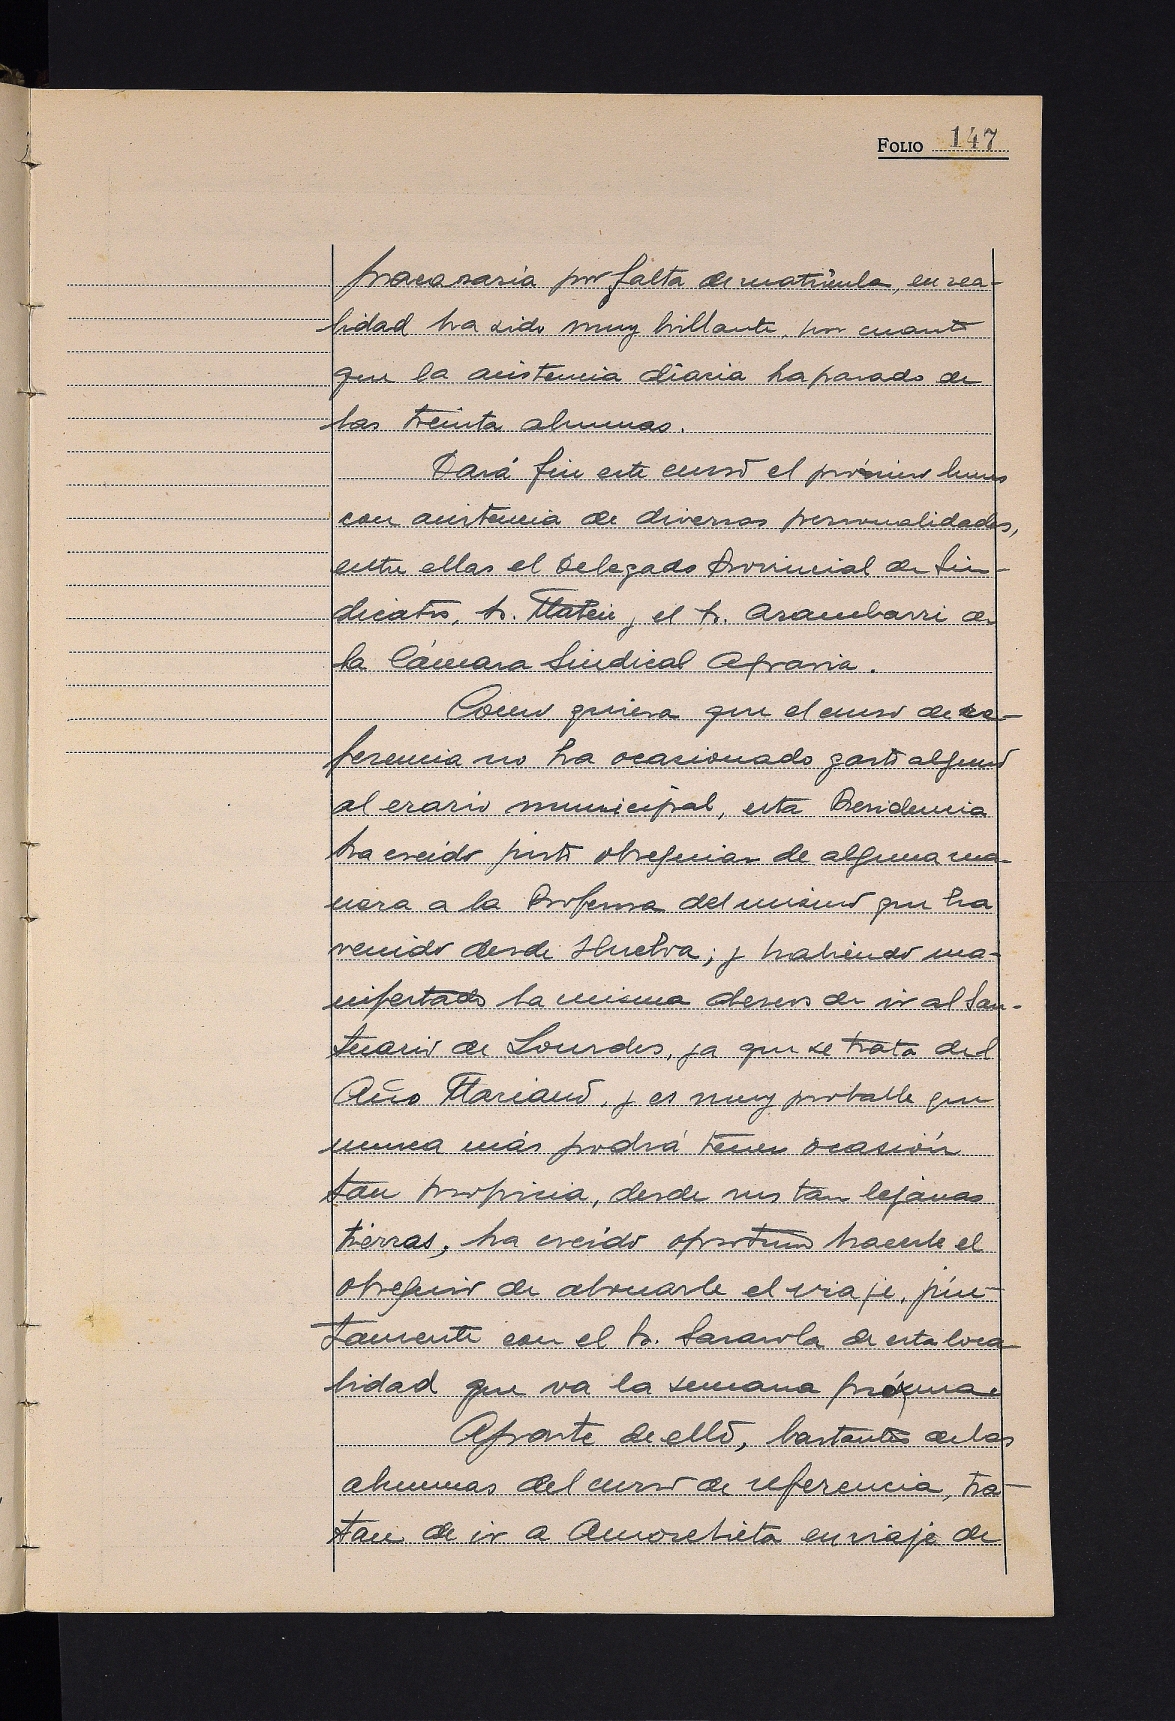 FOLIO 147
fracasaria por falta de matrícula, en rea-
lidad ha sido muy brillante, por cuanto
que la asistencia diaria ha pasado de
las treinta alumnas.
Dará fin este curso el próximo lunes
con asistencia de diversas personalidades,
entre ellas el Delegado Provincial de Sin-
dicatos, Sr. y el Sr. Arambarri de
la Cámara Sindical Agraria.
Como quiera que el curso de re-
ferencia no ha ocasionado gasto alguno
al erario municipal, esta Presidencia
ha creido justo obsequiar de alguna ma-
nera a la Profesora del mismo que ha
venido desde Huelva; y habiendo ma-
nifestado la misma deseos de ir al San-
tuario de Lourdes, ya que se trata del
Año Mariano, y es muy probable que
nunca más podrá tener ocasión
tan propicia, desde sus tan lejanas
tierras, ha creido oportuno hacerle el
obsequio de abonarle el viaje, jun-
tamente con el Sr. Sarasola de esta loca-
lidad que va la semana próxima.
Aparte de ello, bastantes de las
alumnas del curso de referencia, tra-
tan de ir a Amorebieta en viaje de